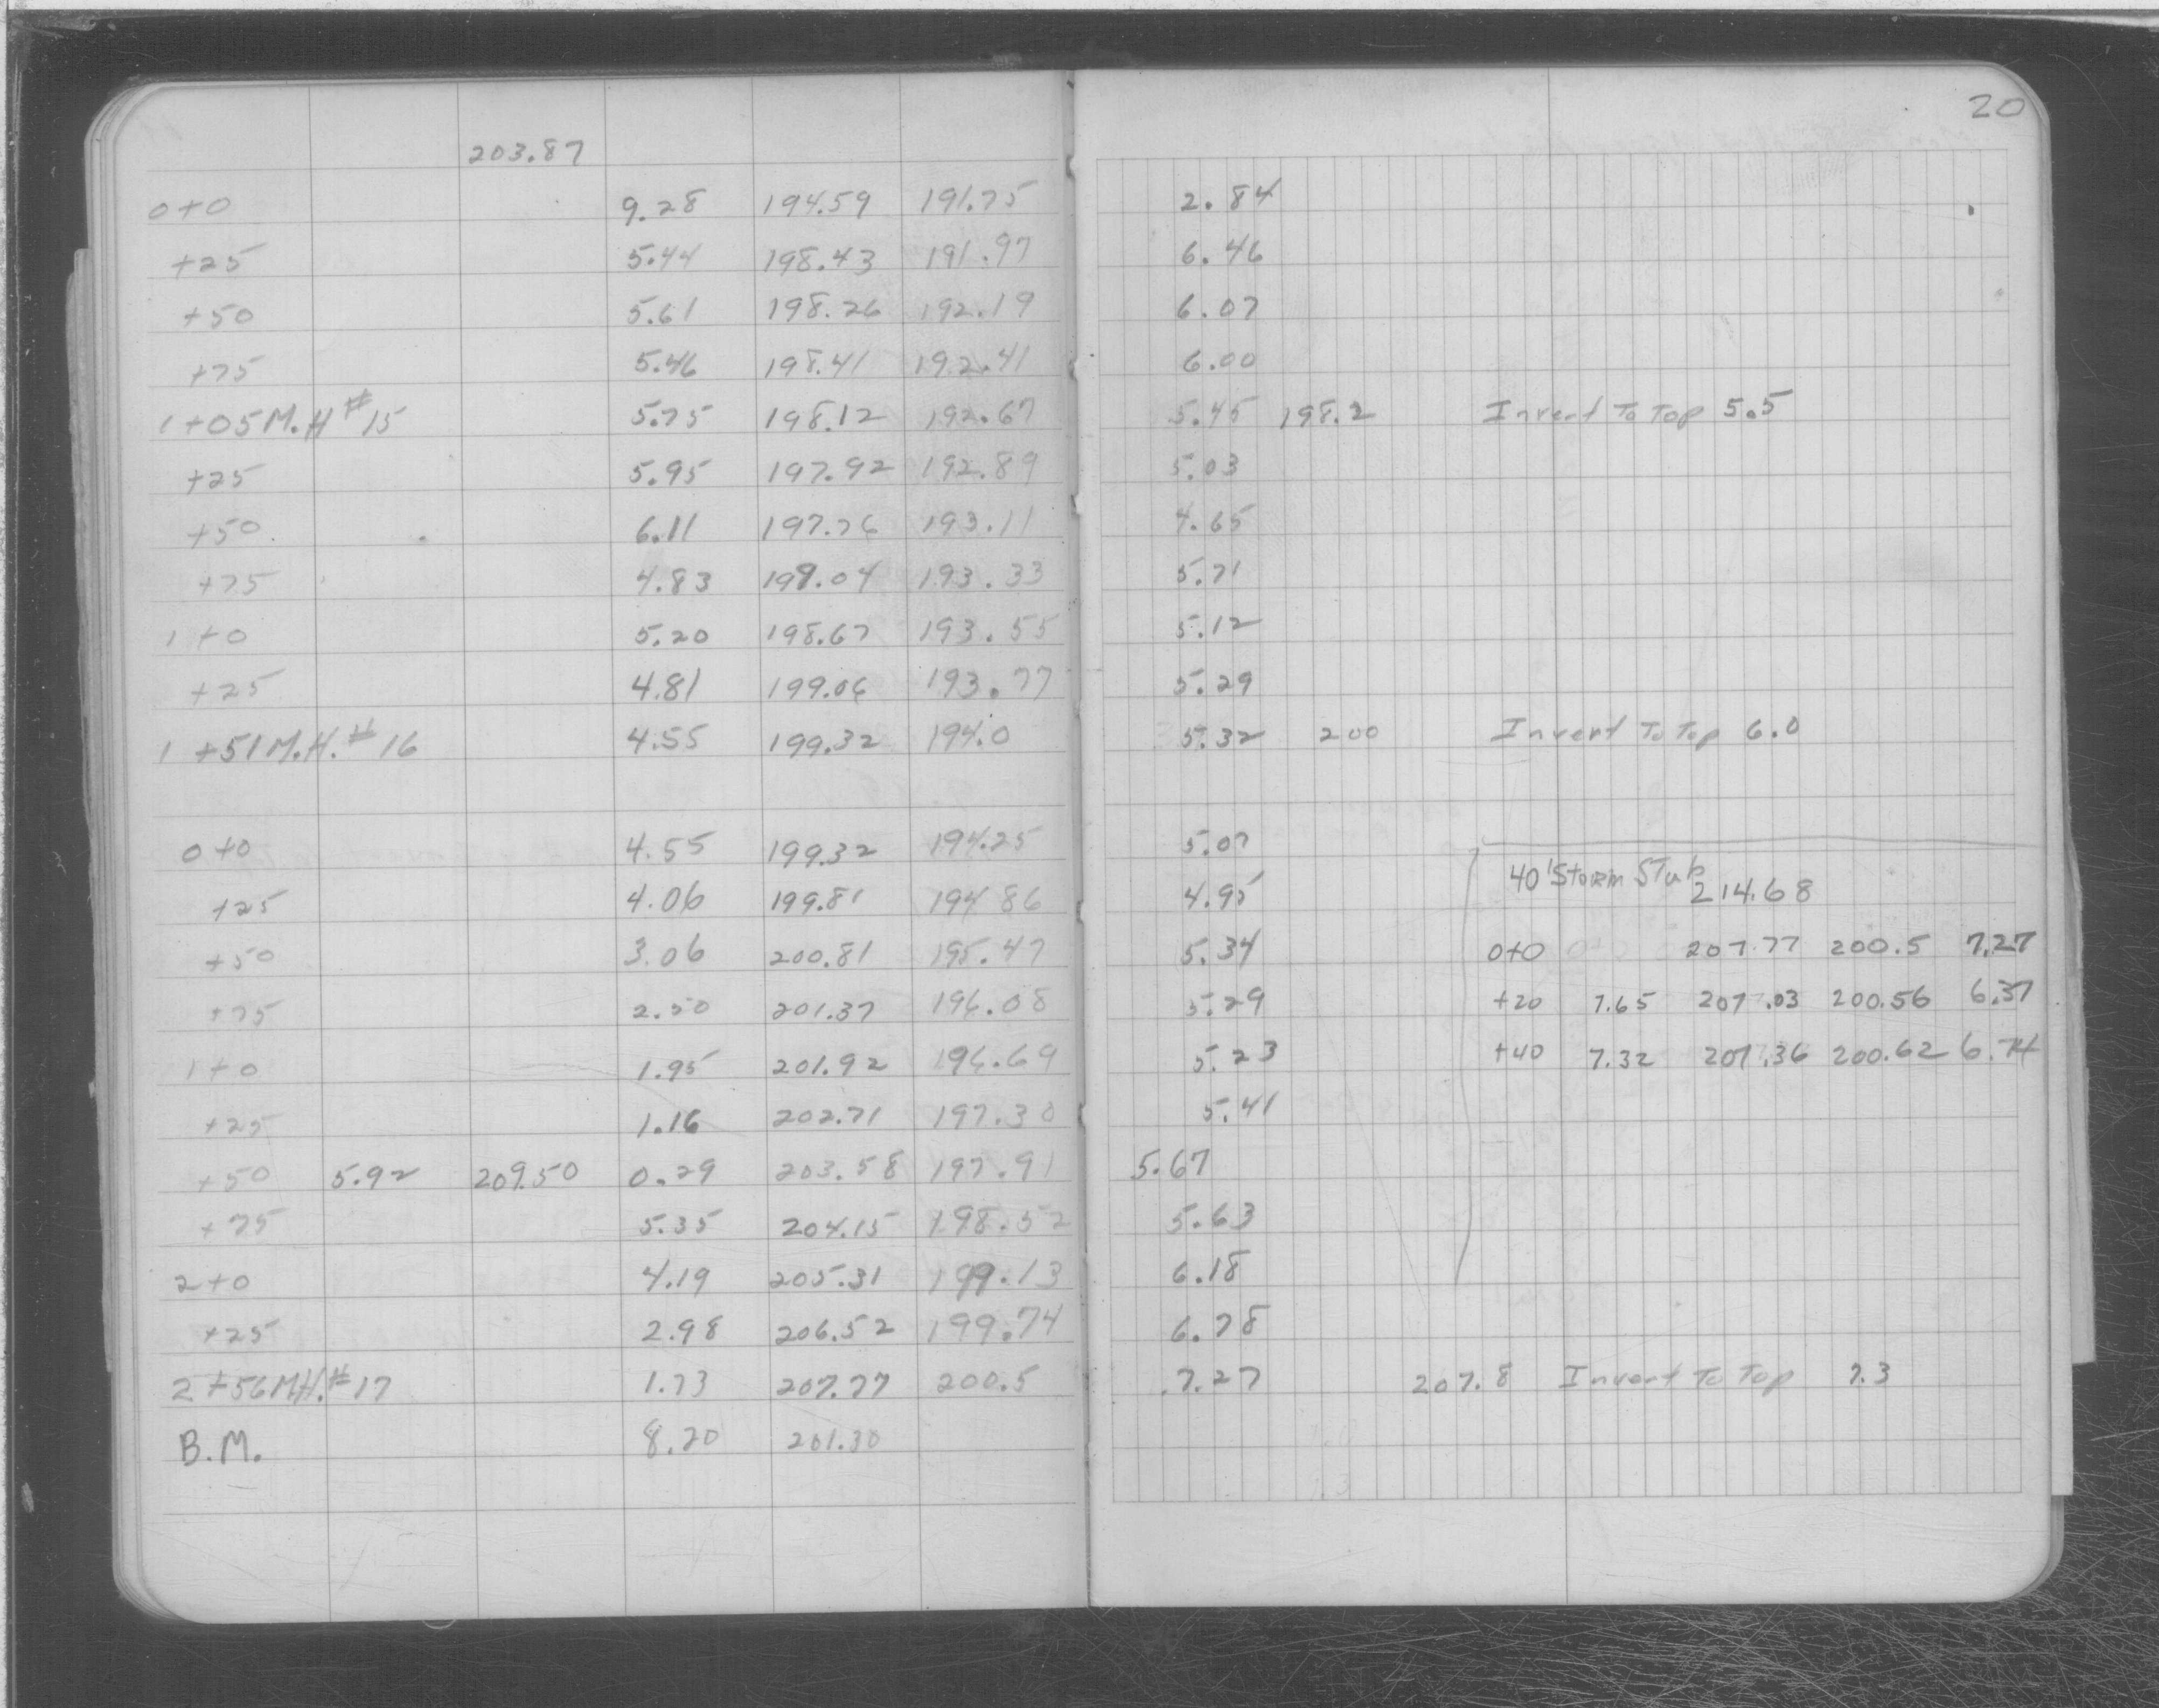 20
203.87
0+0 9.28 194.59 191.75 2.84
+25 5.44 198.43 191.97 6.46
+50 5.61 198.26 192.19 6.07
+75 5.46 198.41 192.41 6.00
1+05 M.H #15 5.75 198.12 192.67 5.45 198.2 Invert To Top 5.5
+25 5.95 197.92 192.89 5.03
+50 6.11 197.76 193.11 4.65
+75 4.83 199.04 193.33 5.71
1+0 5.20 198.67 193.55 5.12
+25 4.81 199.06 193.77 5.29
1+51 M.H. #16 4.55 199.32 194.0 5.32 200 Invert To Top 6.0
0+0 4.55 199.32 194.25 5.07
40' Storm Stub
+25 4.06 199.81 194 86 4.95 214.68
+50 3.06 200.81 195.47 5.34 0+0 207.77 200.5 7.27
+75 2.50 201.37 196.08 5.29 +20 7.65 207.03 200.56 6.37
1+0 1.95 201.92 196.69 5.23 +40 7.32 207.36 200.62 6.74
+25 1.16 202.71 197.30 5.41
+50 5.92 209.50 0.29 203.58 197.91 5.67
+75 5.35 204.15 198.52 5.63
2+0 4.19 205.31 199.13 6.18
+25 2.98 206.52 199.74 6.78
2+56 MH. #17 1.73 207.77 200.5 7.27 207.8 Invert To Top 7.3
B.M. 8.20 201.30